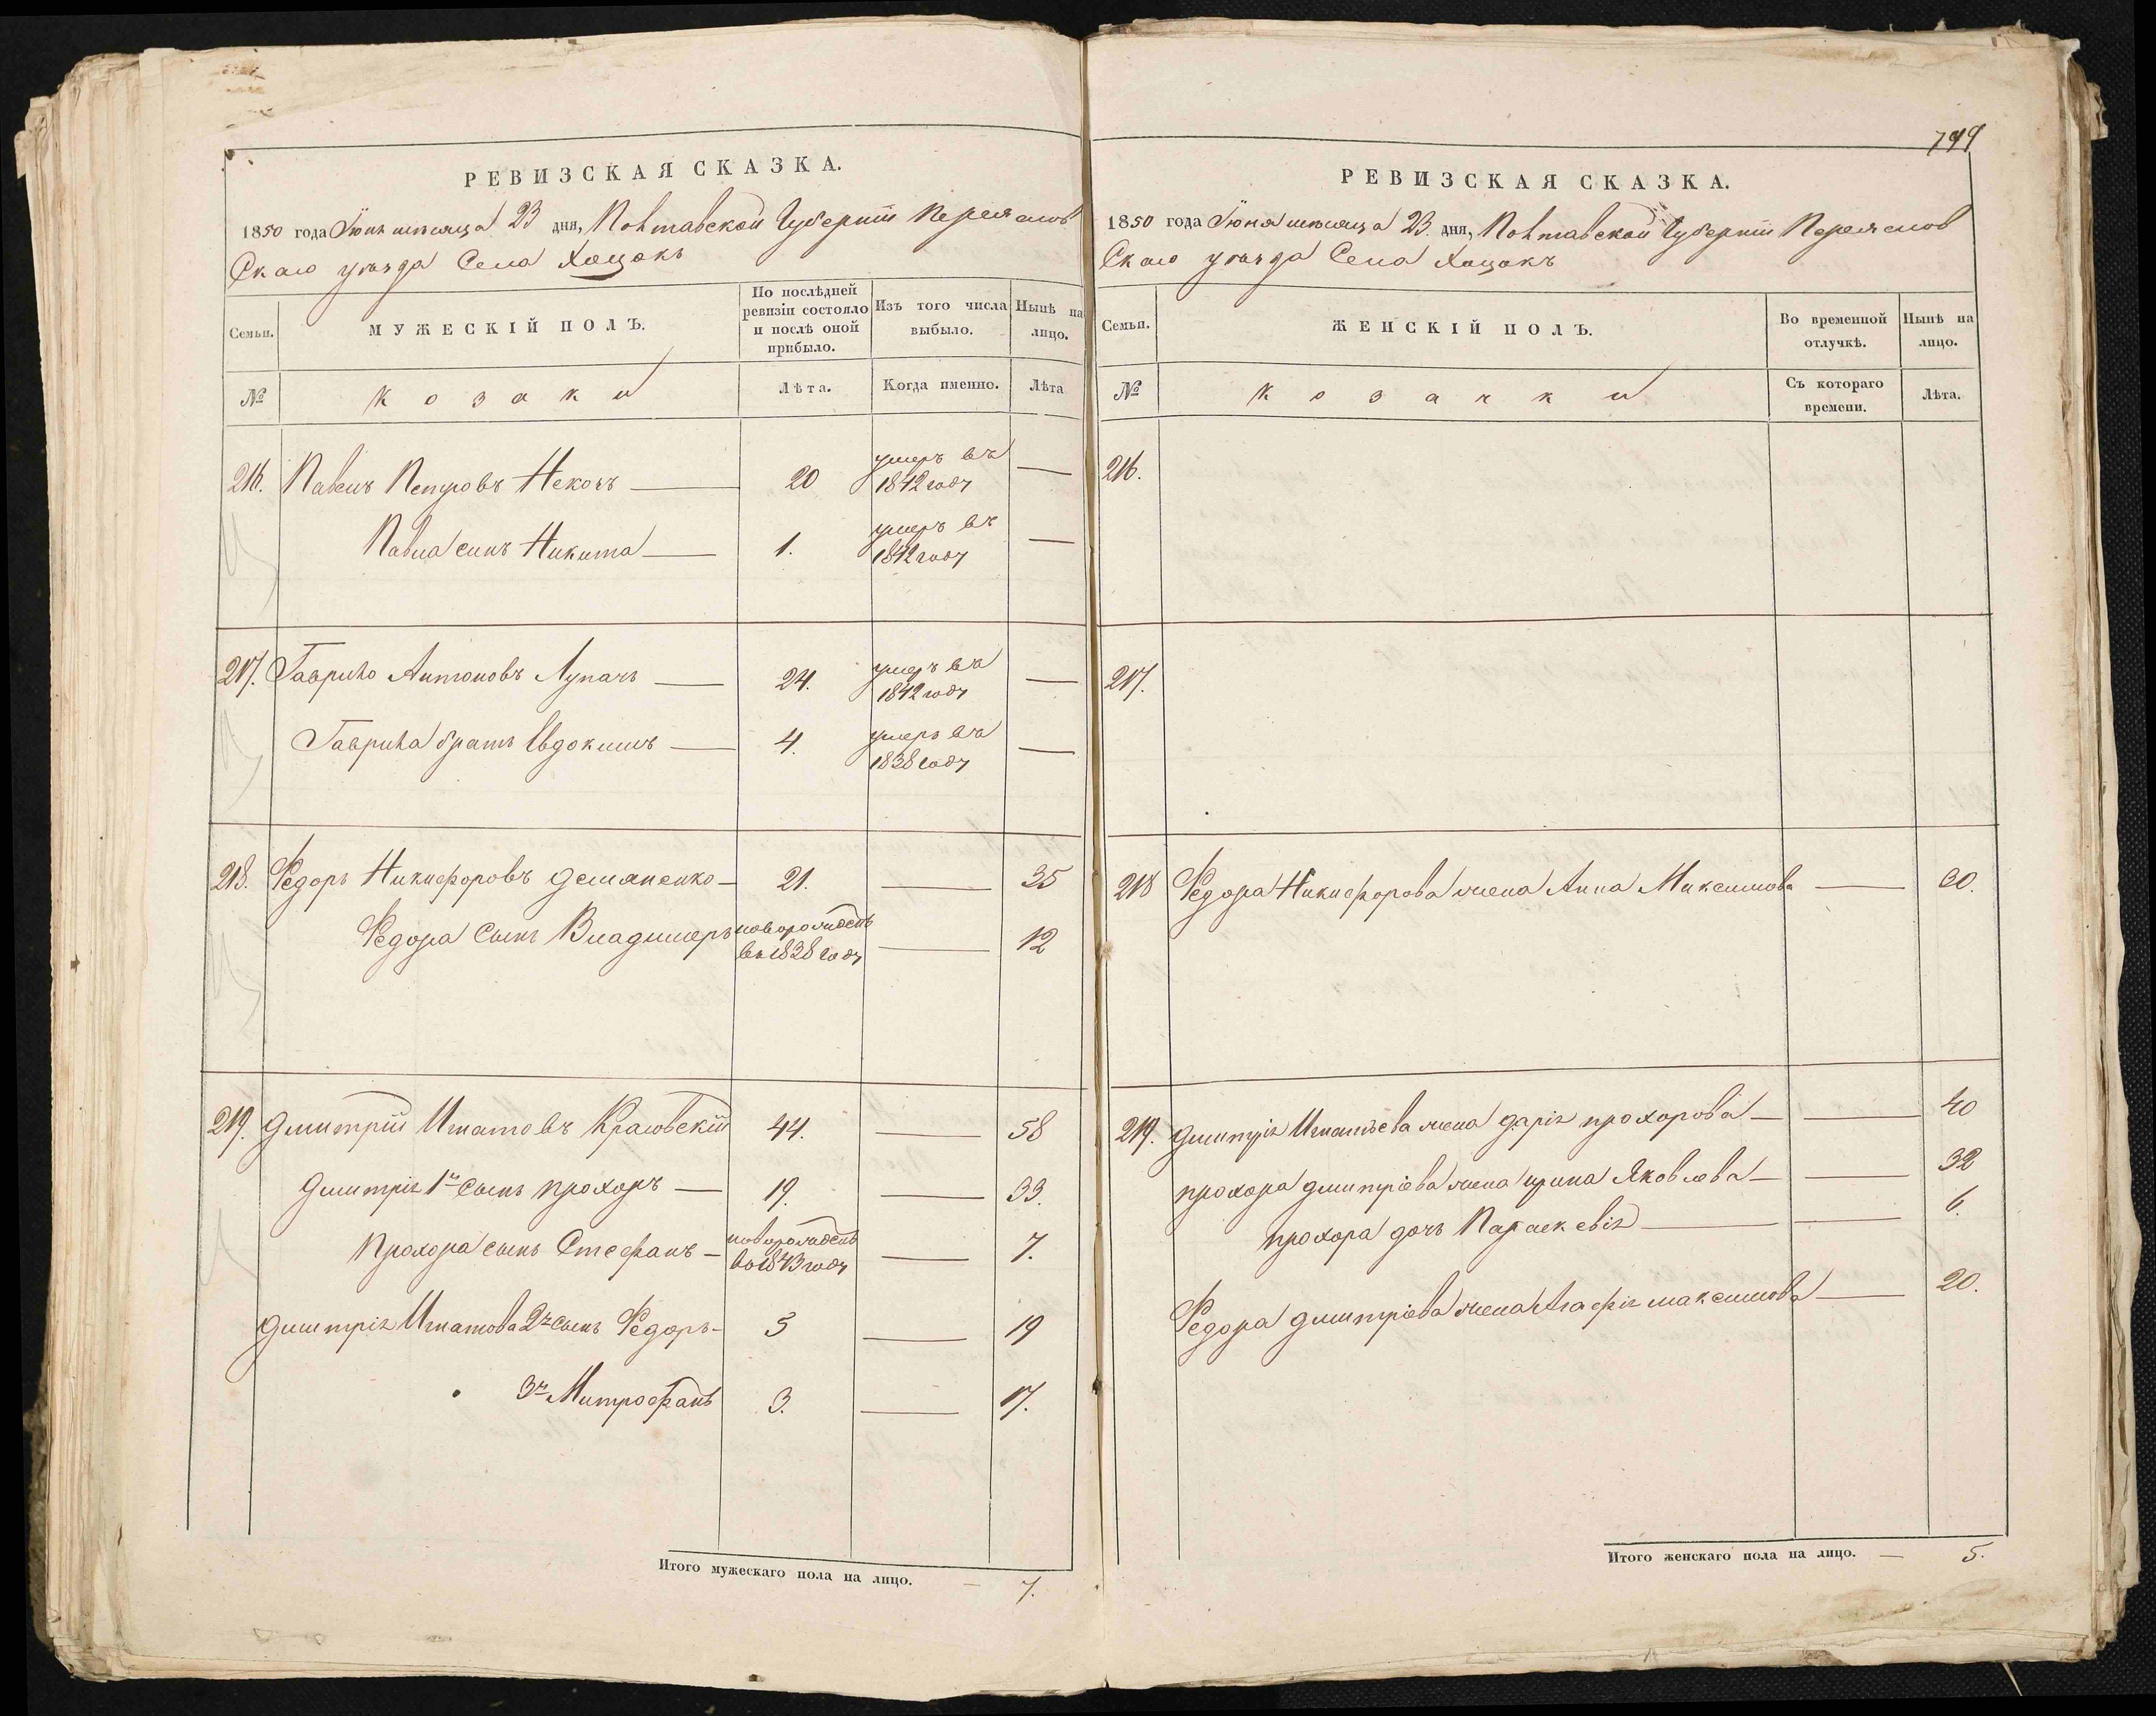 РЕВИЗСКАЯ СКАЗКА.
1850 года Іюня мѣсяца 23 дня, Полтавской Губерніи Переяслов
скаго уѣзда Села Хоцокъ
Семьи.
МУЖЕСКІЙ ПОЛЪ.
По послѣдней
ревизіи состояло
и послѣ оной
прибыло.
Изъ того числа
выбыло.
Нынѣ на
лицо.
№
Козаки
Лѣта.
Когда именно.
Лѣта
216. Павелъ Петровъ 20 умеръ въ
1842 году
Павла сынъ Никита 1. умеръ въ
1842 году
217. Гаврило Антоновъ Лупачъ 24. умеръ въ
1842 году
Гаврила братъ Евдокимъ 4. умеръ въ
1838 году
218. Федоръ Никифоровъ Демяненко 21. 35
Федора сынъ Владимеръ новорожденъ 12
въ 1838 году
219. Дмитрій Игнатовъ 44. 58
Дмитрія 1й сынъ Прохоръ 19. 33.
Прохора сынъ Стефанъ новорожденъ 7.
въ 1843 году
Дмитрія Игнатова 2й сынъ Федоръ 5 19
3й Митрофанъ 3. 17.
Итого мужескаго пола на лицо. — 7.
799
РЕВИЗСКАЯ СКАЗКА.
1850 года Іюня мѣсяца 23 дня, Полтавской Губерніи Переяслов
скаго уѣзда Села Хоцокъ
Семьи.
ЖЕНСКІЙ ПОЛЪ.
Во временной
отлучкѣ.
Нынѣ на
лицо.
№
Козачки
Съ котораго
времени.
Лѣта.
216.
217.
218 Федора Никифорова жена Анна Максимова 30.
219. Дмитрія Игнатьева жена Дарія Прохорова 40
Прохора Дмитріева жена Ирина Яковлева 32
Прохора дочь Параскевія 6.
Федора Дмитріева жена Агафія Максимова 20.
Итого женскаго пола на лицо. — 5.